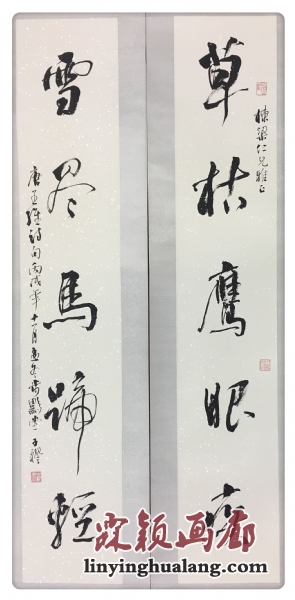 草枯鷹眼疾
棟梁仁兄雅正
雪尽馬蹄輕
唐王維詩句丙戌年十一月
霖颖画廊
linyinghualang.com